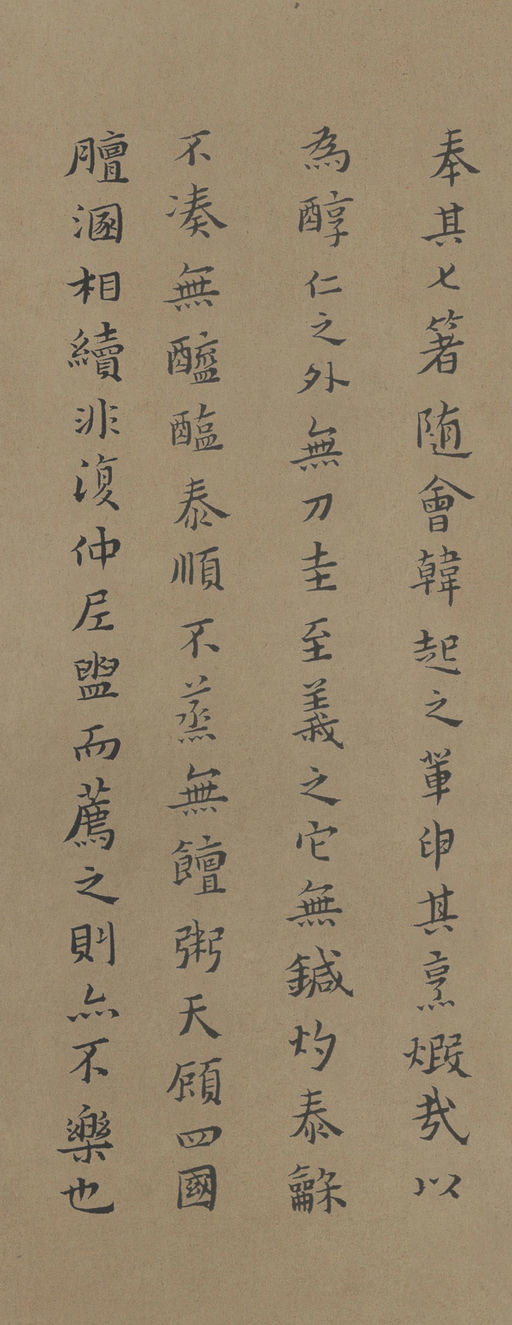 奉其匕箸随會韓起之軰申其烹煆㢤以
為醇仁之外無刀圭至義之它無鍼灼泰龢
不凑無醯醢泰順不蒸無饘粥天頋四國
膻溷相續非復仲尼盥而薦之則亦不樂也